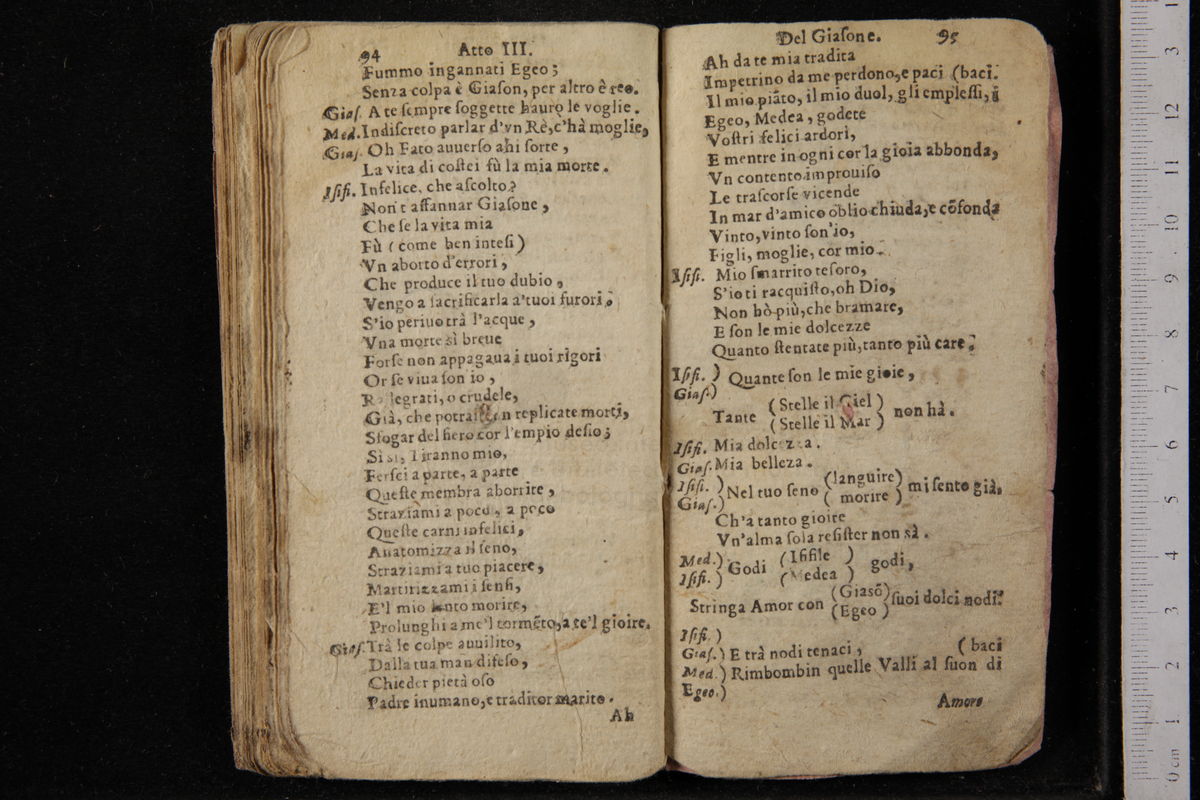 94 Atto III.
Fummo ingannati Egeo;
Senza colpa è Giaſon, per altro ê reo.
Giaſ. A te ſempre ſoggette haurò le voglie.
Med. Indiſcreto parlar d'vn Rè, c'hà moglie,
Giaſ. Oh Fato auuerſo ahi ſorte,
La vita di coſtei fù la mia morte.
Iſiſi. Infelice, che aſcolto?
Non t'affannar Giaſone,
Che ſe la vita mia
Fù (come ben inteſi)
Vn aborto d'errori,
Che produce il tuo dubio,
Vengo a ſacrificarla a'tuoi furori.
S'io periuo trà l'acque,
Vna morte sì breue
Forſe non appagaua i tuoi rigori
Or ſe viua ſon io,
Rallegrati, o crudele,
Già, che potrai replicate morti,
Sfogar del fiero cor l'empio deſio;
Si si, Tiranno mio,
Ferſci a parte, a parte
Queſte membra aborrite,
Straziami a poco, a poco
Queſte carni infelici,
Anatomizza il ſeno,
Straziami a tuo piacere,
Martirizzami i ſenſi,
E'l mio lento morire,
Prolunghi a me'l tormẽto, a te'l gioire.
Giaſ. Trà le colpe auuilito,
Dalla tua man difeſo,
Chieder pietà oſo
Padre inumano, e traditor marito.
Ah
Del Giaſone. 95
Ah da te mia tradita
Impetrino da me perdono, e paci (baci.
Il mio piãto, il mio duol, gli empleſſi, i
Egeo, Medea, godete
Voſtri felici ardori,
E mentre in ogni cor la gioia abbonda,
Vn contento improuiſo
Le traſcorſe vicende
In mar d'amico oblio chiuda, e cõfonda
Vinto, vinto ſon'io,
Figli, moglie, cor mio.
Iſiſi. Mio ſmarrito teſoro,
S'io ti racquiſto, oh Dio,
Non hò più, che bramare,
E ſon le mie dolcezze
Quanto ſtentate più, tanto più care.
Iſiſi. )
Giaſ.) Quante ſon le mie gioie,
Tante (Stelle il Ciel )
(Stelle il Mar ) non hà.
Iſiſi. Mia dolcezza.
Giaſ. Mia belleza.
Iſiſi. )
Giaſ.) Nel tuo ſeno (languire)
( morire ) mi ſento già,
Ch'a tanto gioire
Vn'alma ſola reſiſter non sà.
Med.)
Iſiſi. ) Godi (Iſiſile )
(Medea ) godi,
Stringa Amor con (Giasõ)
(Egeo ) ſuoi dolci nodi.
Iſiſi. )
Giaſ.) E trà nodi tenaci, (baci
Med.) Rimbombin quelle Valli al ſuon di
Egeo.)
Amore
0 cm 1 2 3 4 5 6 7 8 9 10 11 12 3